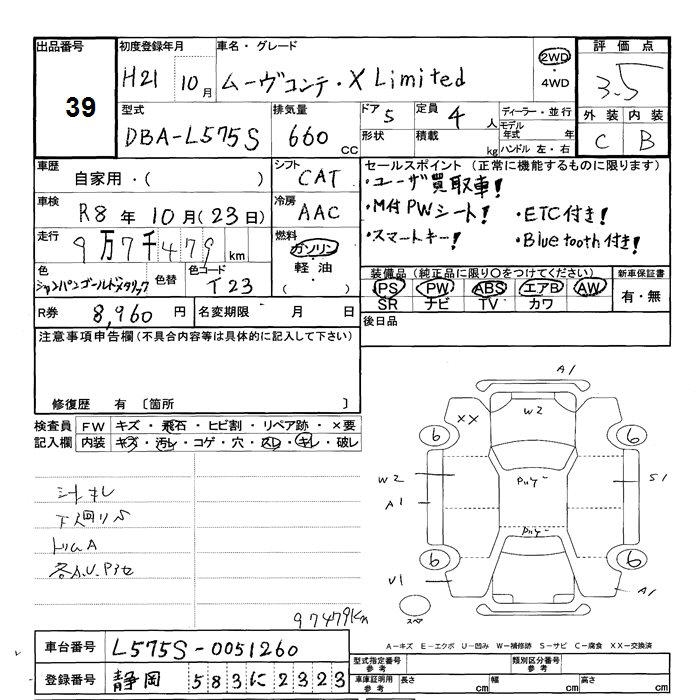 出品番号
39
初度登録年月
H21 10月
車名・グレード
ムーヴコンテ・X Limited
2WD
・
4WD
評価点
3.5
外装 内装
C B
型式
DBA-L575S
排気量
660 cc
ドア 5
形状
定員 4 人
積載 kg
ディーラー・並行
モデル
年式 年
ハンドル 左・右
車歴
自家用・( )
シフト
CAT
車検
R8年10月(23日)
冷房
AAC
走行
9万7千479km
燃料
ガソリン
・
軽油
・
( )
色
シャンパンゴールドメタリック
色替
色コード
T23
セールスポイント(正常に機能するものに限ります)
・ユーザ買取車!
・M付PWシート! ・ETC付き!
・スマートキー! ・Bluetooth付き!
装備品(純正品に限り○をつけてください)
PS PW ABS エアB AW
SR ナビ TV カワ
新車保証書
有・無
後日品
R券 8,960円
名変期限 月 日
注意事項申告欄(不具合内容等は具体的に記入して下さい)
修復歴 有〔箇所 〕
検査員
記入欄
FW キズ・飛石・ヒビ割・リペア跡・×要
内装 キズ・汚レ・コゲ・穴・スレ・キレ・破レ
シートキレ
下回りS
トリムA
各A.U.Pアセ
97479km
A1
W2
XX
6
6
W2
A1
Pアセ
S1
Pアセ
6
6
U1
A1
スペア
A-キズ E-エクボ U-凹み W-補修跡 S-サビ C-腐食 XX-交換済
車台番号 L575S-0051260
登録番号 静岡 583に2323
型式指定番号
参考
類別区分番号
参考
車庫証明用
参考
長さ cm 幅 cm 高さ cm